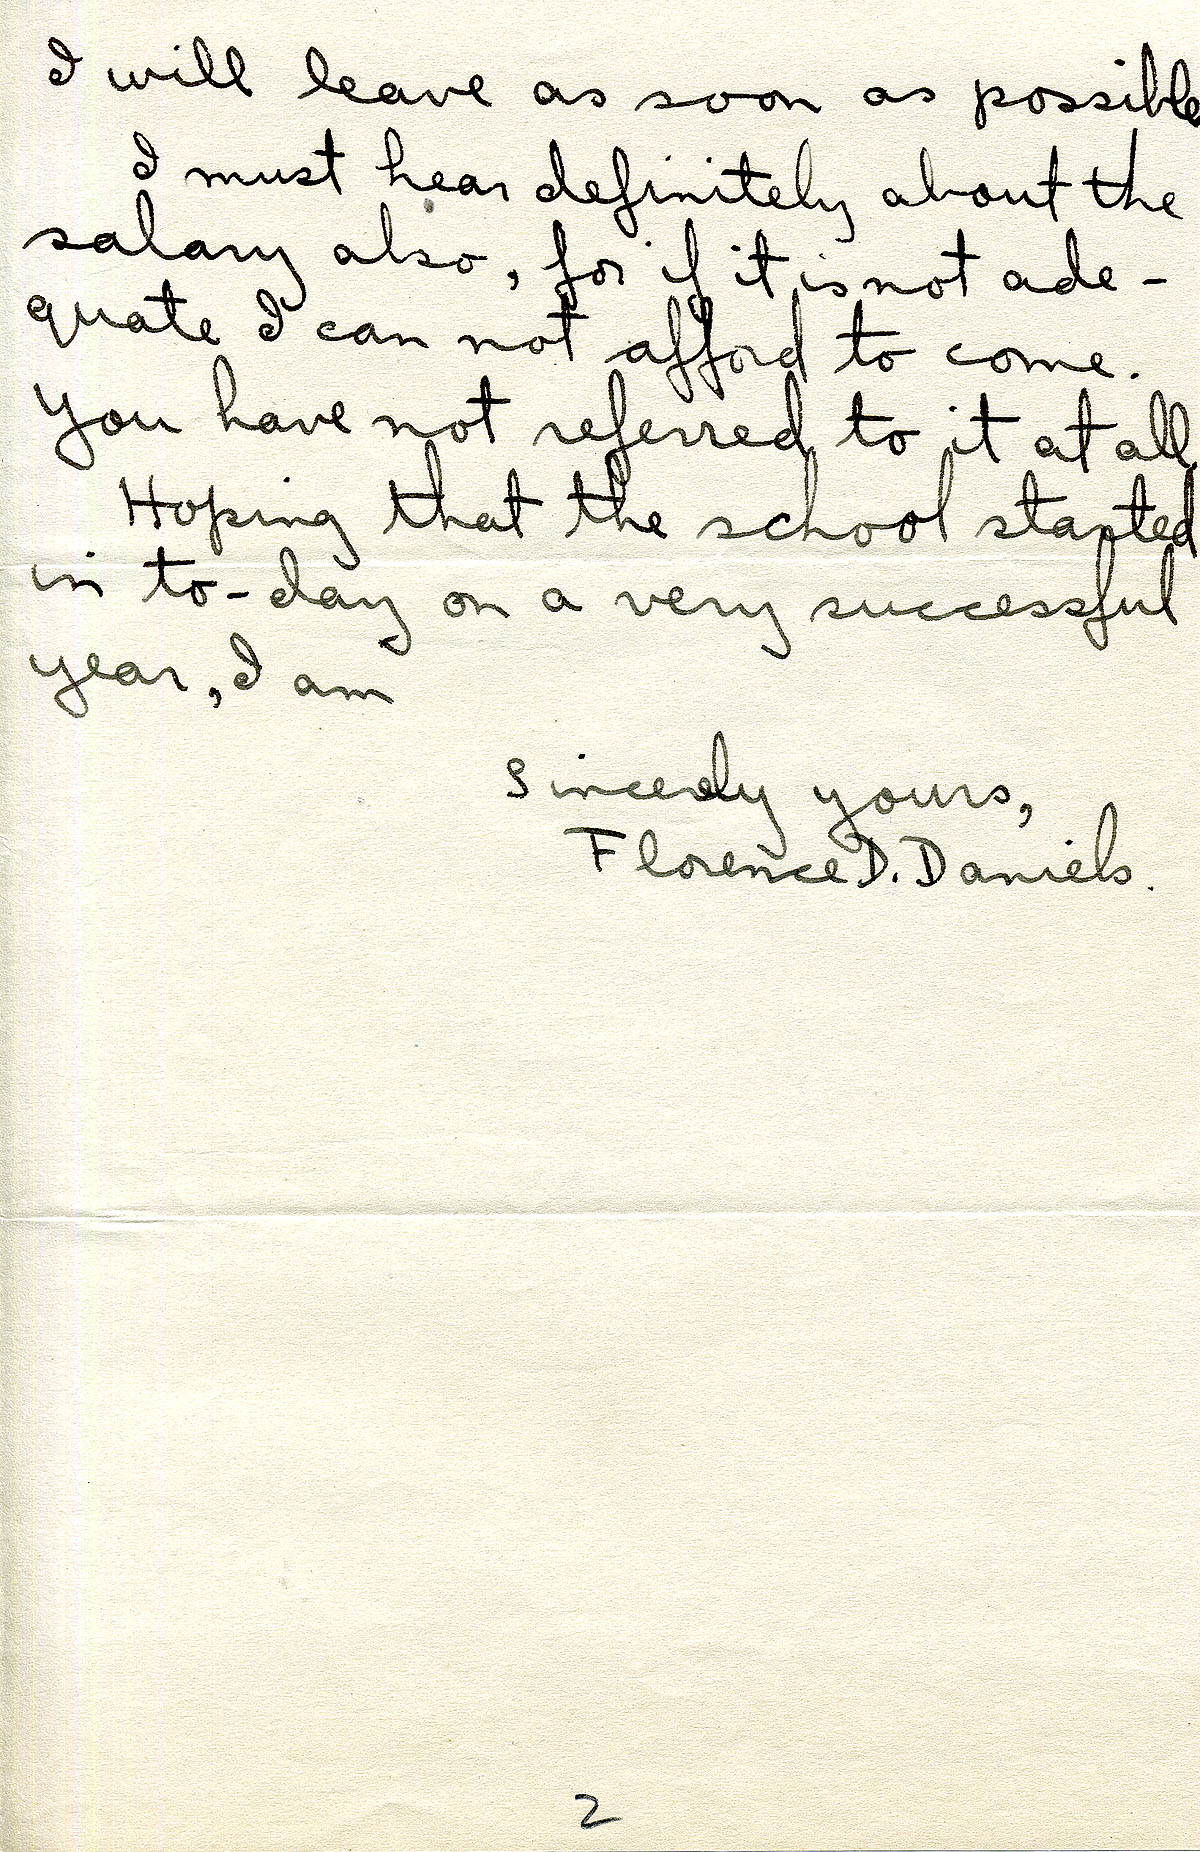 I will leave as soon as possible
I must hear definitely about the
salary also, for if it is not ade-
quate I can not afford to come.
You have not referred to it at all.
Hoping that the school started
in to-day on a very successful
year, I am
Sincerely yours,
Florence D. Daniels.
2